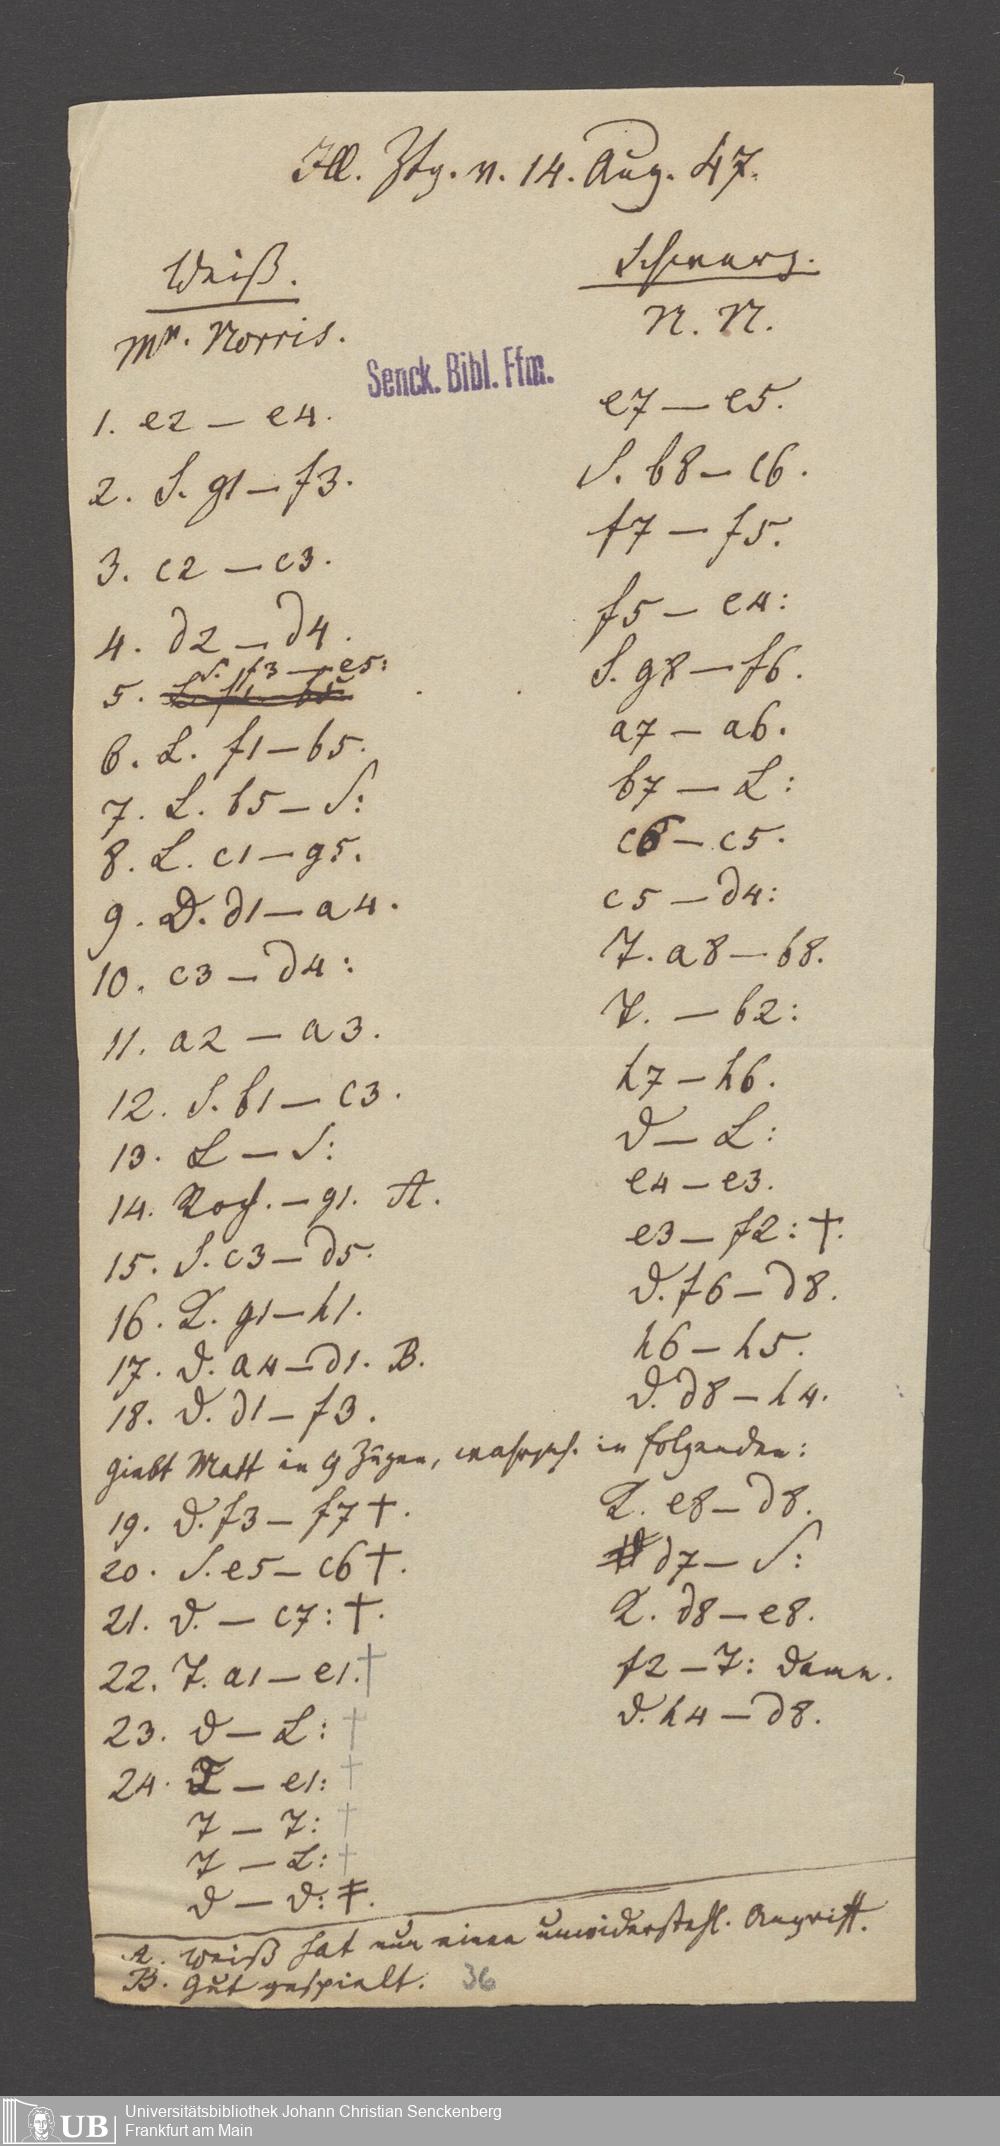 Ill. Ztg. v. 14. Aug. 47.
Weiß. Schwarz.
Mr. Norris. N. N.
Senck. Bibl. Ffm.
1. e2 — e4. e7 — e5.
2. S. g1 — f3. S. b8 — c6.
3. c2 — c3. f7 — f5.
4. d2 — d4. f5 — e4:
5. S. f3 — e5: S. g8 — f6.
6. L. f1 — b5. a7 — a6.
7. L. b5 — S: b7 — L:
8. L. c1 — g5. c6 — c5.
9. D. d1 — a4. c5 — d4:
10. c3 — d4: T. a8 — b8.
11. a2 — a3. T. — b2:
12. S. b1 — c3. h7 — h6.
13. L — S: D — L:
14. Roch. — g1. A. e4 — e3.
15. S. c3 — d5. e3 — f2: †.
16. K. g1 — h1. D. f6 — d8.
17. D. a4 — d1. B. h6 — h5.
18. D. d1 — f3. D. d8 — h4.
giebt Matt in 9 Zügen, wahrsch. in folgenden:
19. D. f3 — f7 †. K. e8 — d8.
20. S. e5 — c6 †. d7 — S:
21. D. — c7: †. K. d8 — e8.
22. T. a1 — e1. † f2 — T: Dame.
23. D — L: † D. h4 — d8.
24. T — e1: †
T — T: †
T — L: †
D — D: ‡.
A. Weiß hat nun einen unwiderstehl. Angriff.
B. Gut gespielt. 36
UB Universitätsbibliothek Johann Christian Senckenberg
Frankfurt am Main